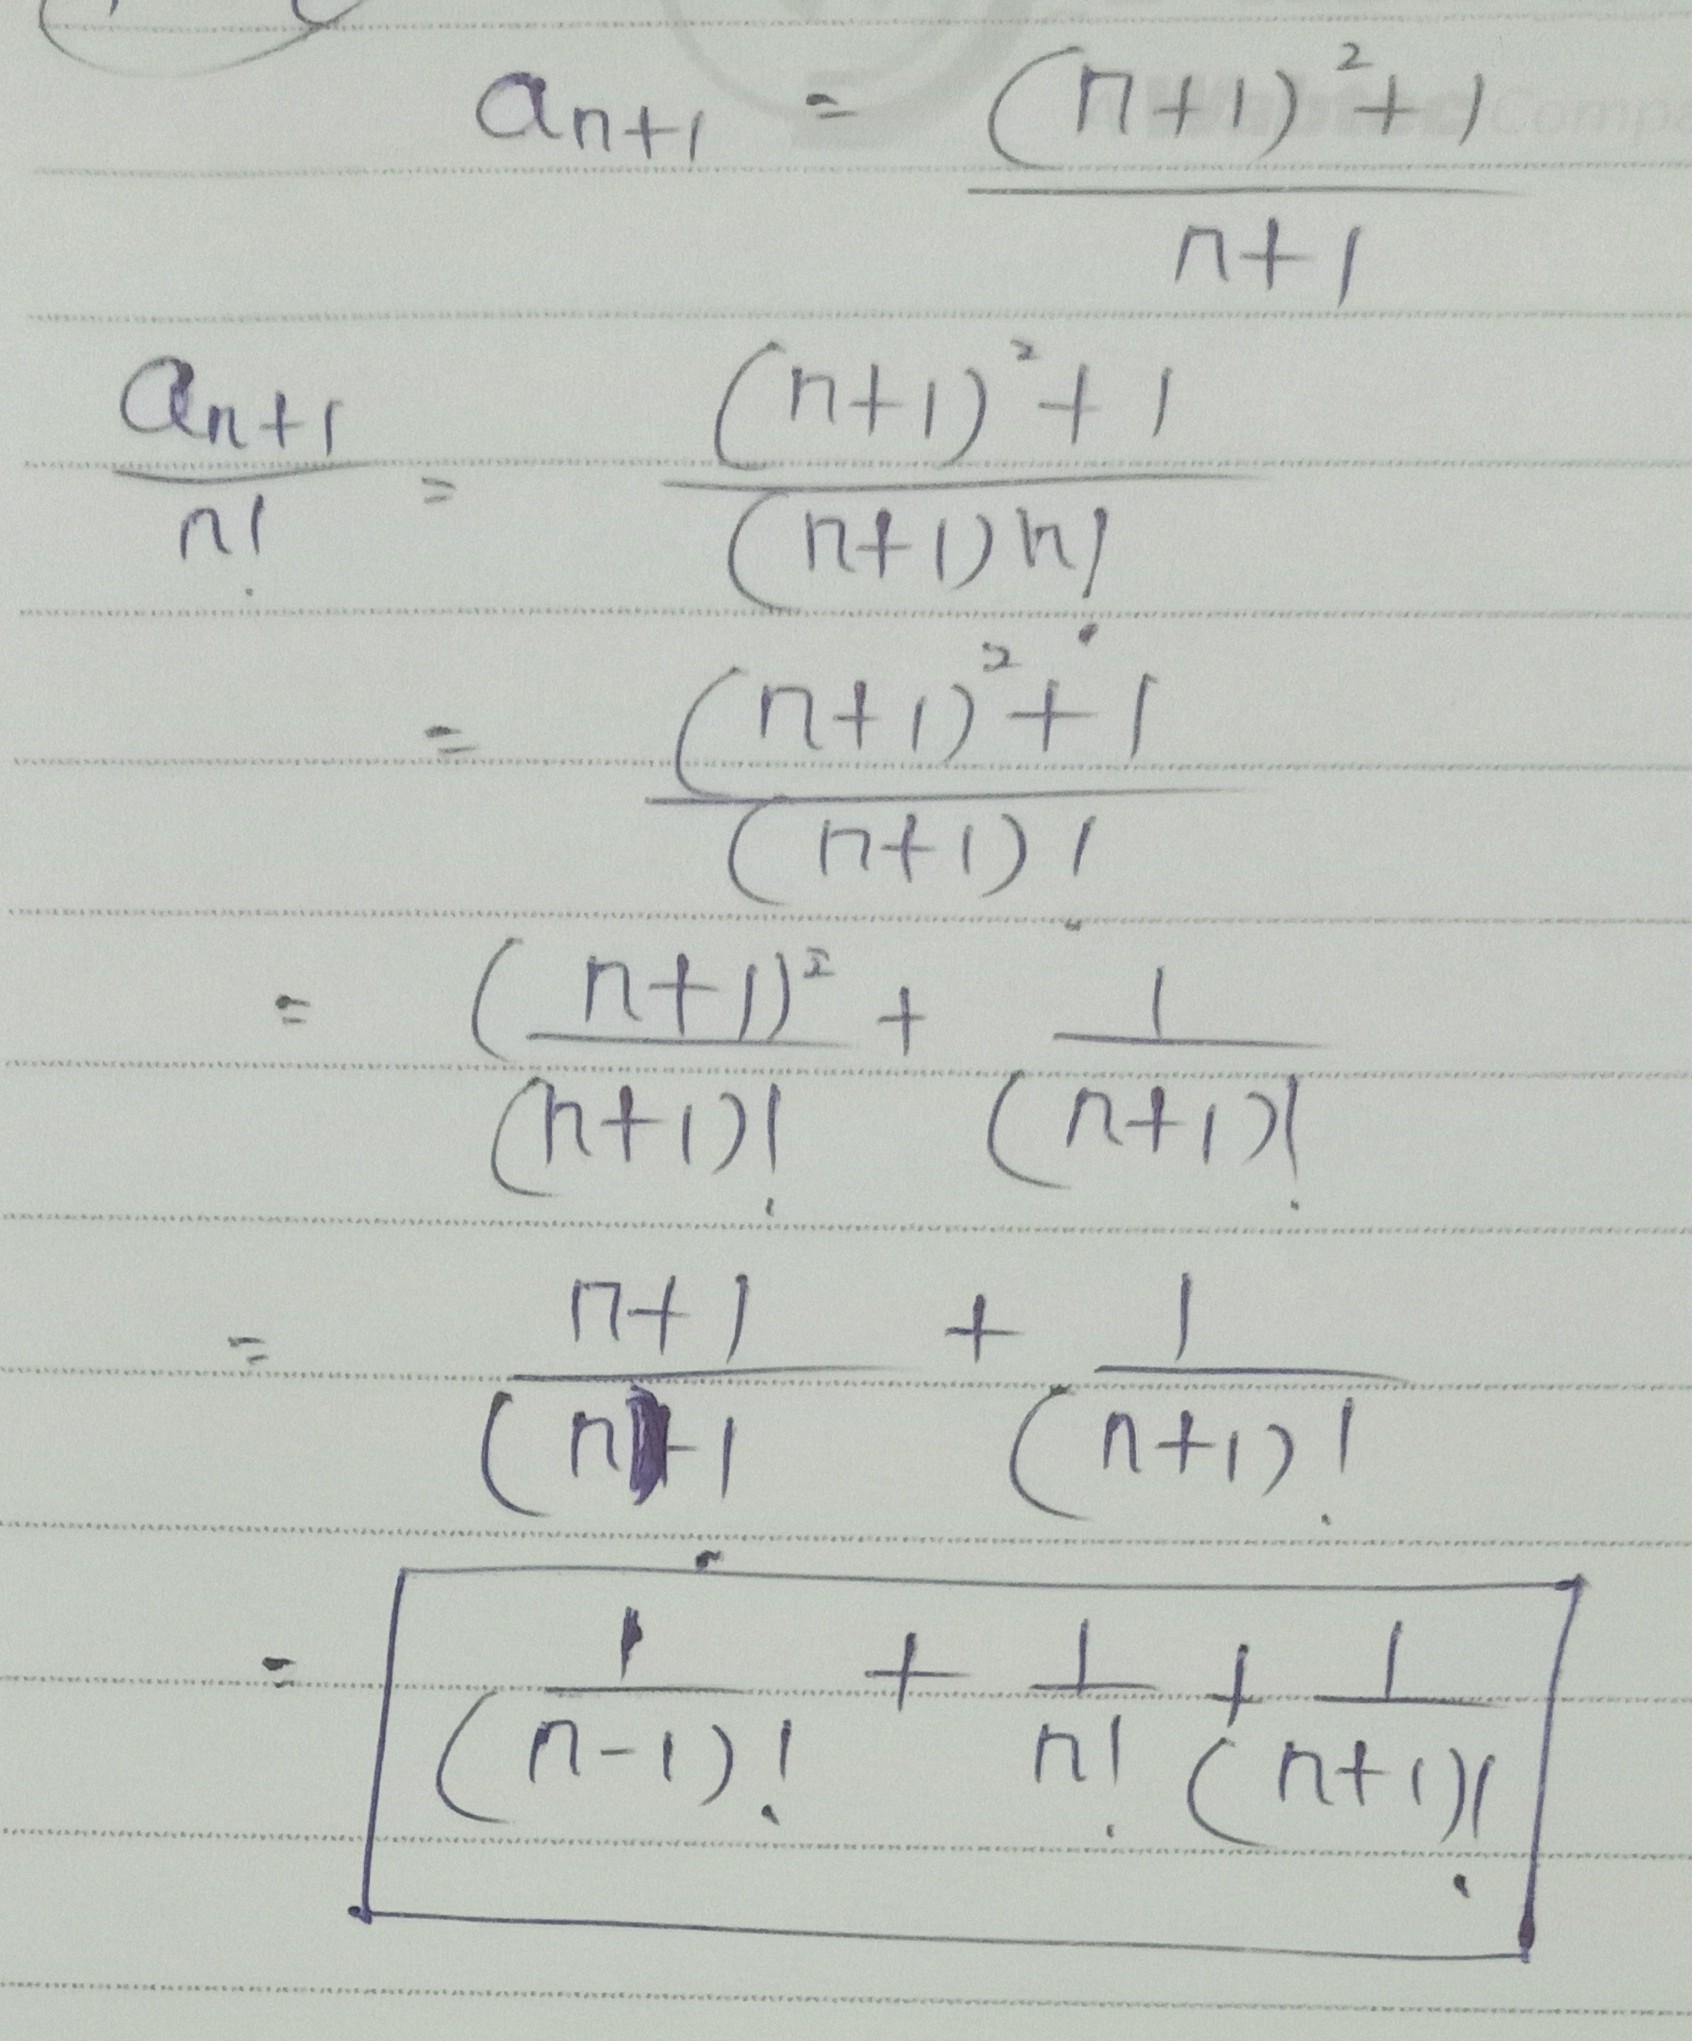 a_{n+1} = \frac{(n+1)^2+1}{n+1}
\frac{a_{n+1}}{n!} = \frac{(n+1)^2+1}{(n+1)n!}
= \frac{(n+1)^2+1}{(n+1)!}
= \frac{(n+1)^2}{(n+1)!} + \frac{1}{(n+1)!}
= \frac{n+1}{(n - 1} + \frac{1}{(n+1)!}
= \frac{1}{(n-1)!} + \frac{1}{n!} + \frac{1}{(n+1)!}